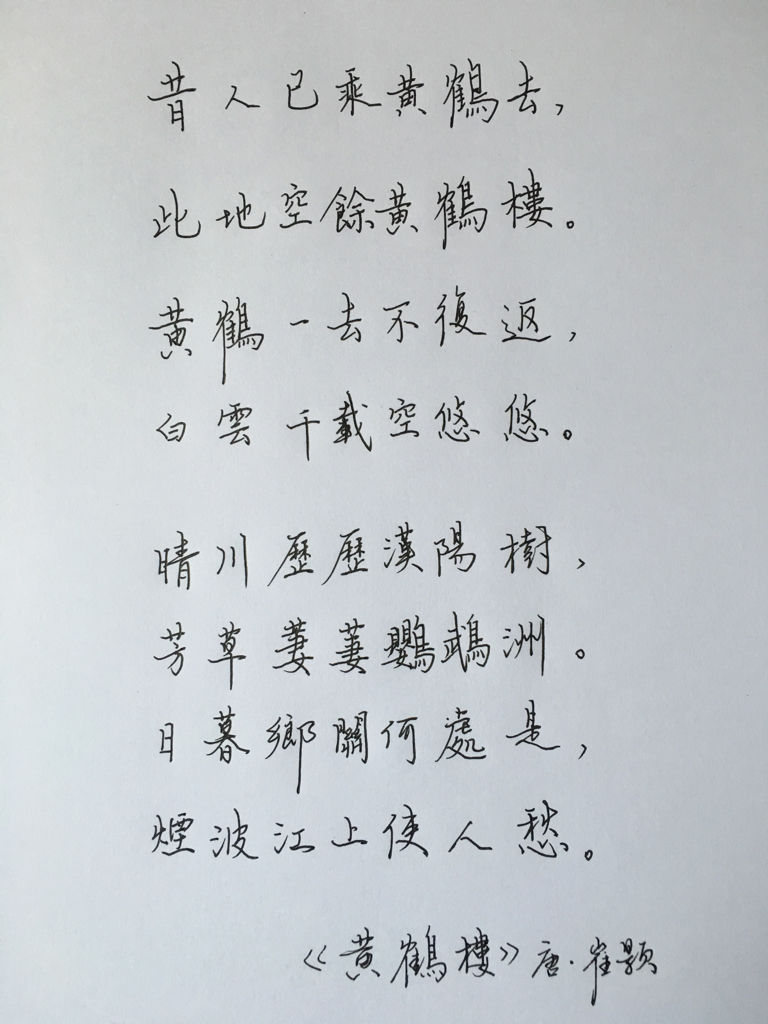 昔人已乘黃鶴去,
此地空餘黃鶴樓。
黃鶴一去不復返,
白雲千載空悠悠。
晴川歷歷漢陽樹,
芳草萋萋鸚鵡洲。
日暮鄉關何處是,
煙波江上使人愁。
《黃鶴樓》唐·崔顥